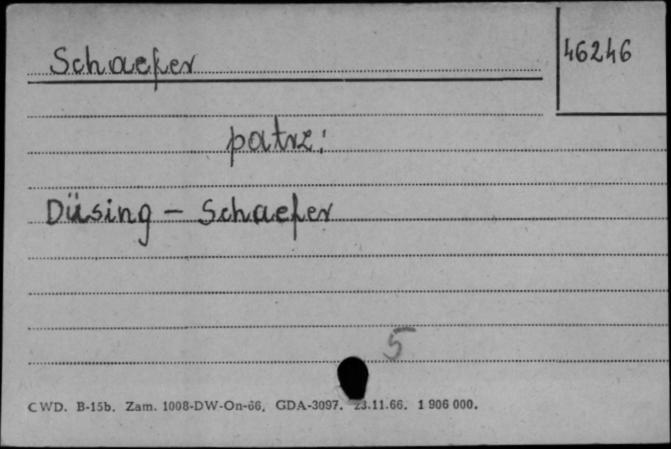 Schaefer
46246
patrz:
Düsing - Schaefer
5
CWD. B-15b. Zam. 1008-DW-On-66. GDA-3097. 23.11.66. 1 906 000.